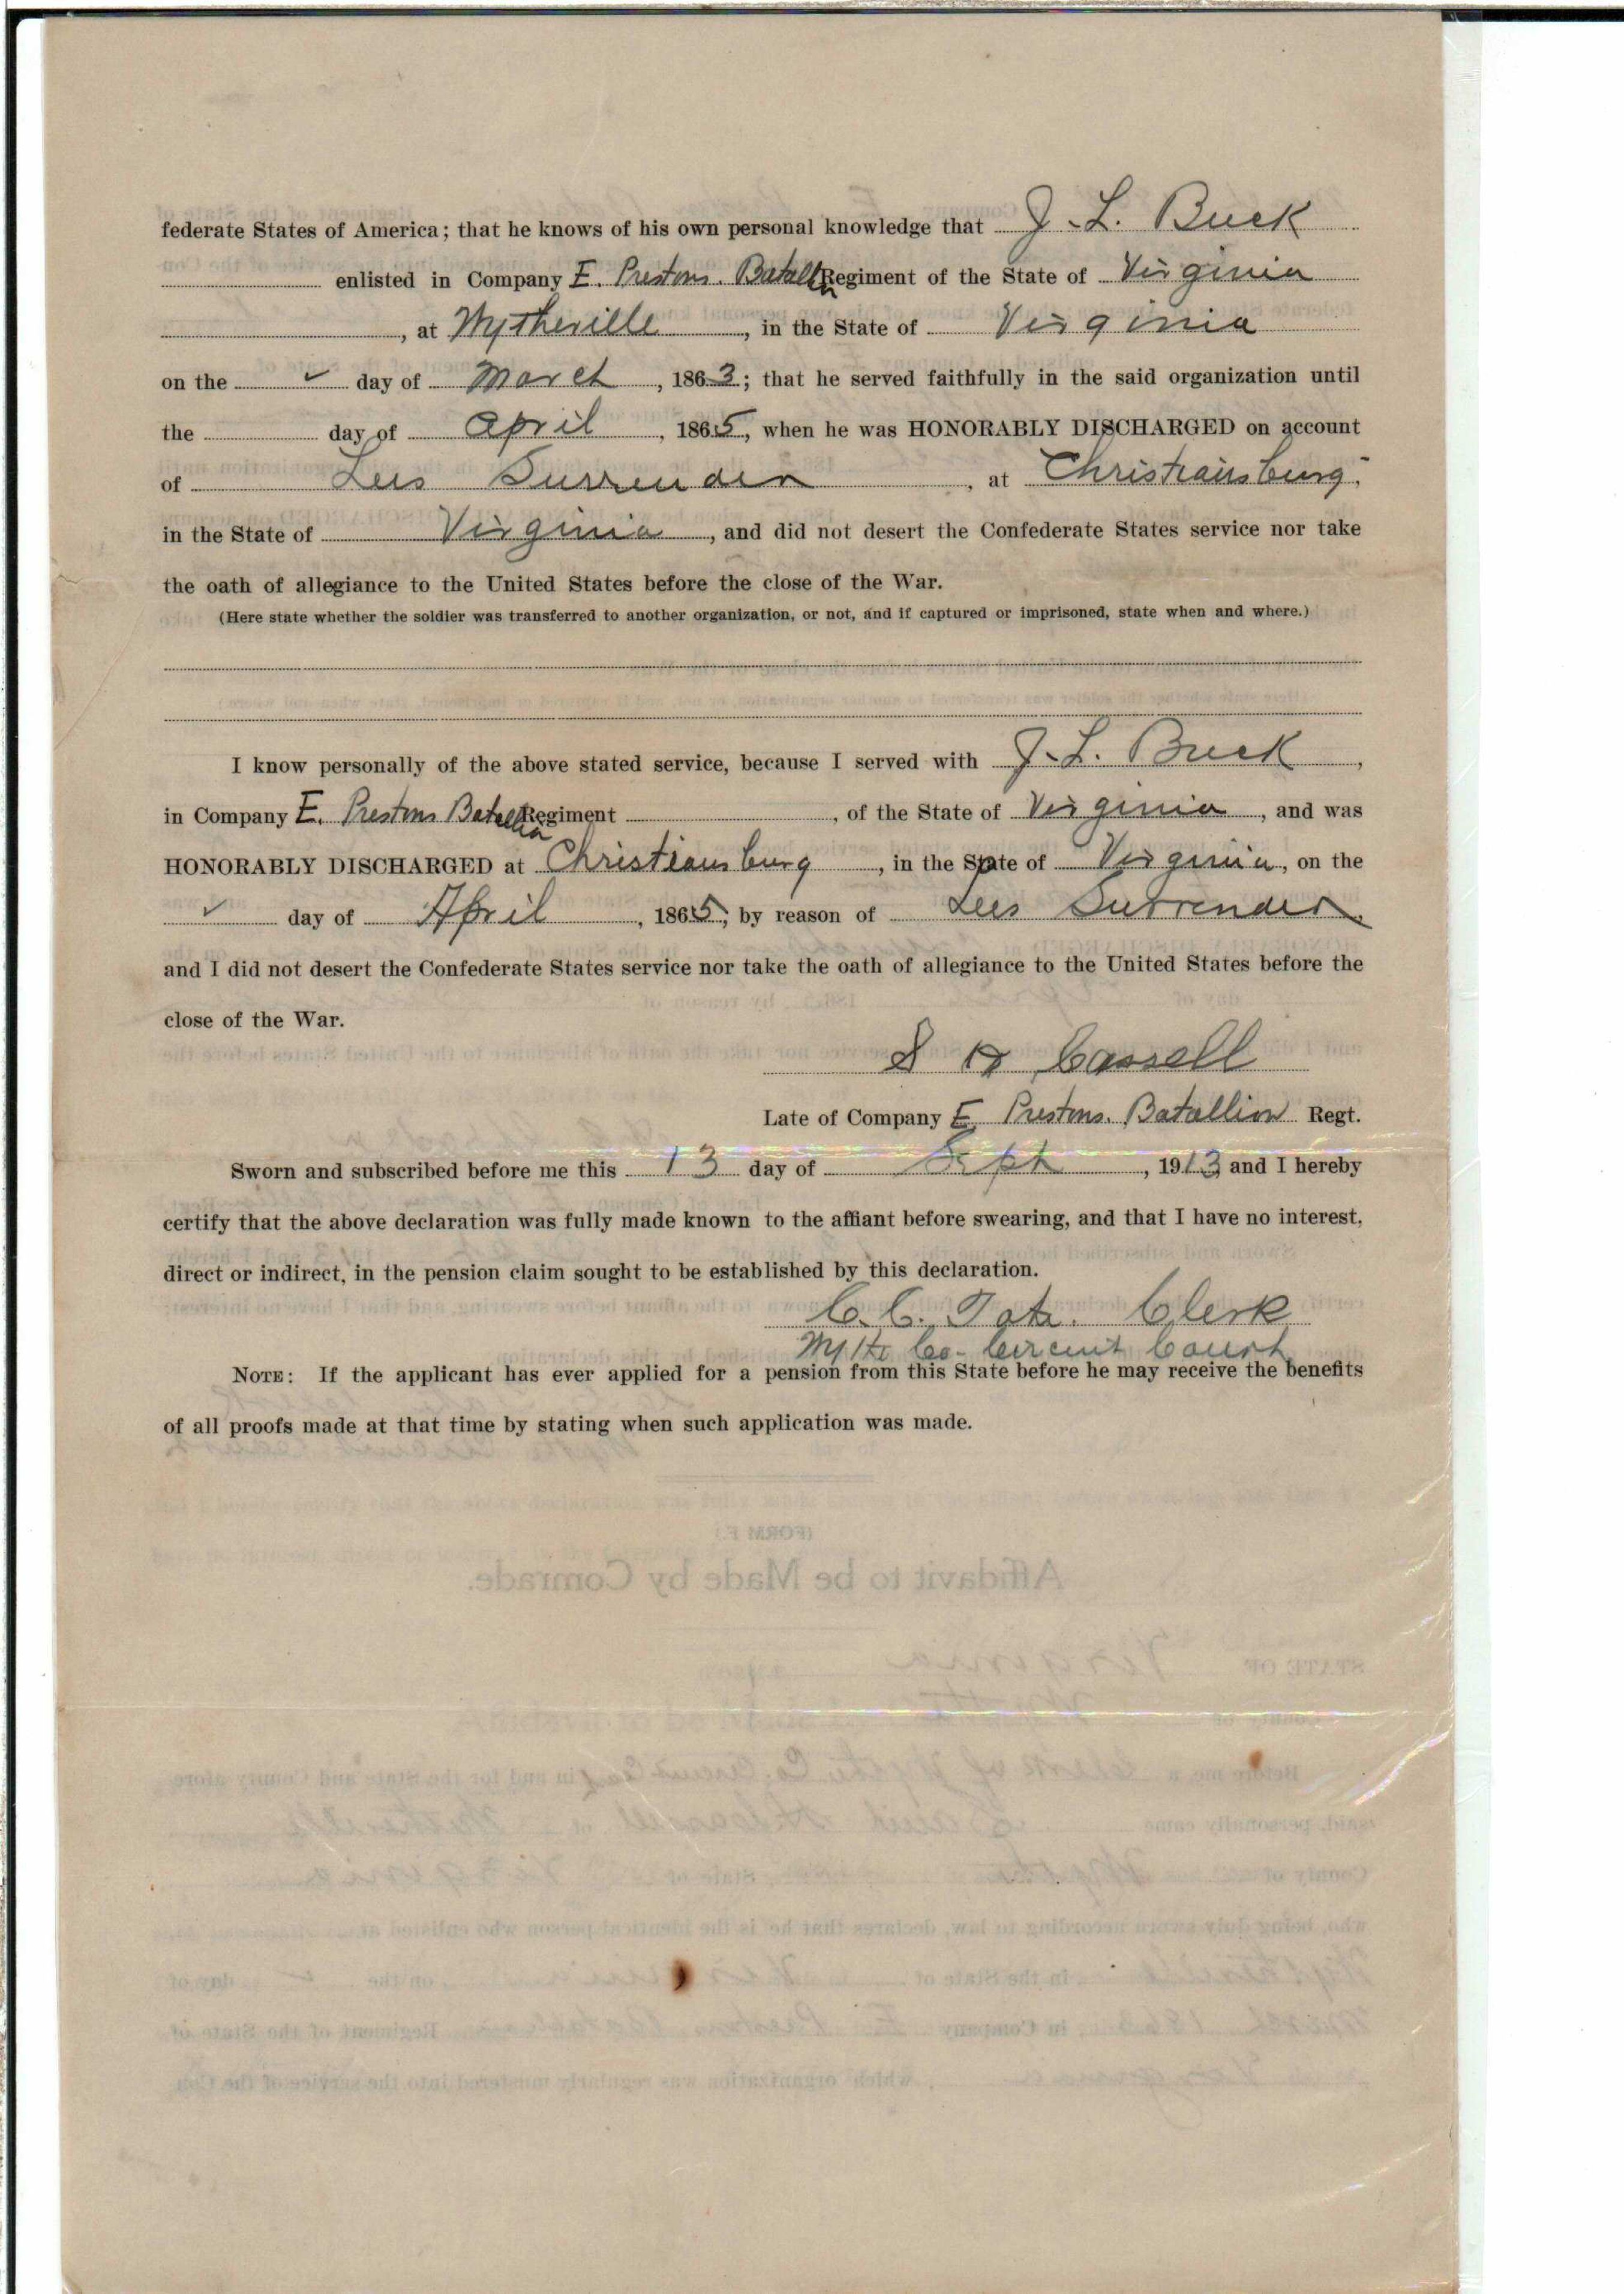 federate States of America; that he knows of his own personal knowledge that J. L. Buck
enlisted in Company E. Prestons. Batallion Regiment of the State of Virginia
, at Wytheville, in the State of Virginia
on the ✓ day of March, 1863; that he served faithfully in the said organization until
the day of April, 1865, when he was HONORABLY DISCHARGED on account
of Lees Surrender, at Christiansburg.
in the State of Virginia, and did not desert the Confederate States service nor take
the oath of allegiance to the United States before the close of the War.
(Here state whether the soldier was transferred to another organization, or not, and if captured or imprisoned, state when and where.)
I know personally of the above stated service, because I served with J. L. Buck,
in Company E. Prestons Batallion Regiment, of the State of Virginia, and was
HONORABLY DISCHARGED at Christiansburg, in the State of Virginia, on the
✓ day of April, 1865, by reason of Lees Surrender.
and I did not desert the Confederate States service nor take the oath of allegiance to the United States before the
close of the War.
S H Cassell
Late of Company E Prestons. Batallion Regt.
Sworn and subscribed before me this 13 day of Sept, 1913 and I hereby
certify that the above declaration was fully made known to the affiant before swearing, and that I have no interest,
direct or indirect, in the pension claim sought to be established by this declaration.
C. C. Tate. Clerk
Wythe Co- Circuit Court
NOTE: If the applicant has ever applied for a pension from this State before he may receive the benefits
of all proofs made at that time by stating when such application was made.